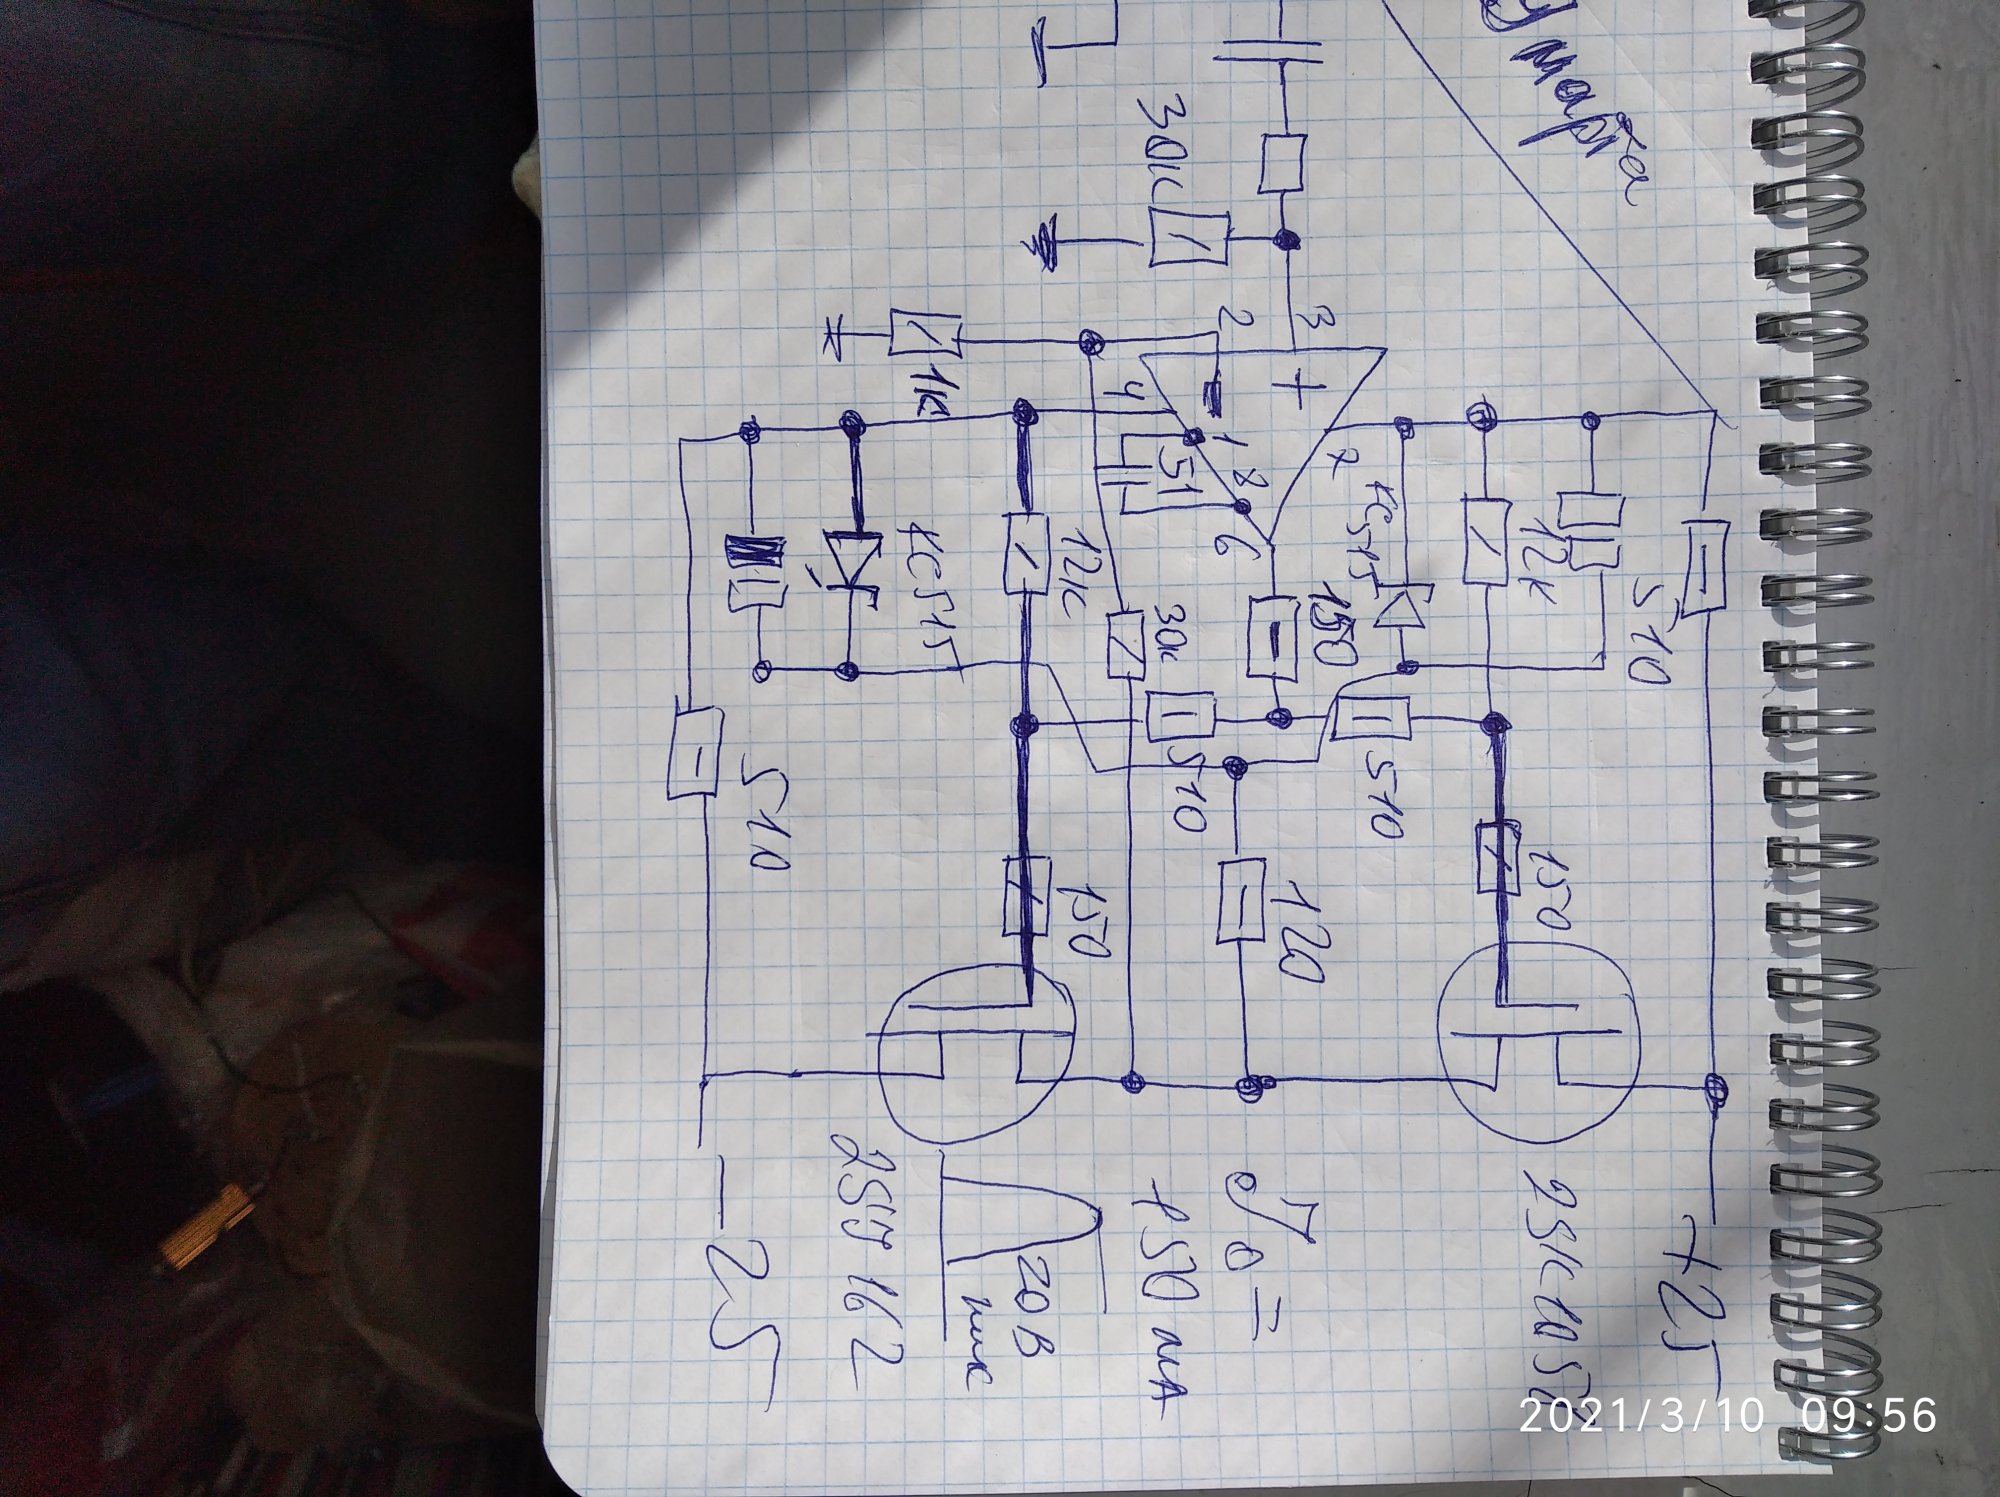 Умарта
30к
3
2
+
-
4
1
51
8
6
7
1к
КС515
12к
510
150
12к
30к
КС515
510
510
510
150
120
150
2SK1058
+25
J0=
150 мА
20В
пик
2SJ162
-25
2021/3/10 09:56